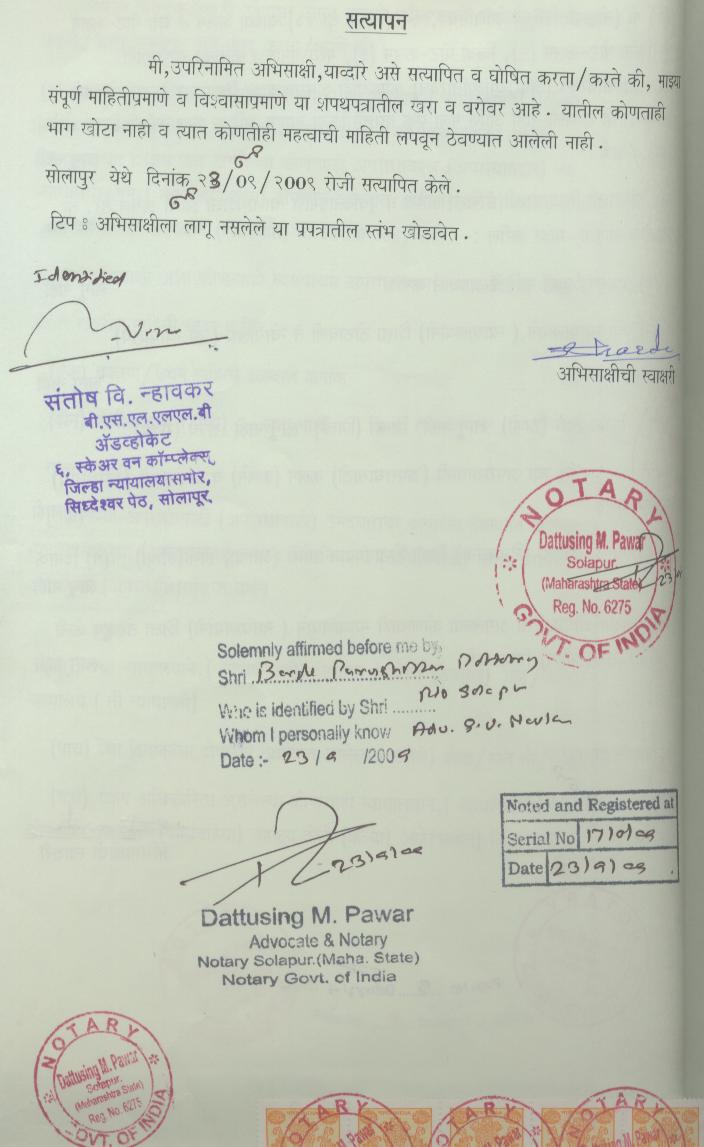 सत्यापन
मी,उपरिनामित अभिसाक्षी,याव्दारे असे सत्यापित व घोषित करता/करते की, माझ्या
संपूर्ण माहितीप्रमाणे व विश्वासाप्रमाणे या शपथपत्रातील खरा व वरोवर आहे . यातील कोणताही
भाग खोटा नाही व त्यात कोणतीही महत्वाची माहिती लपवून ठेवण्यात आलेली नाही .
सोलापुर येथे दिनांक २३/०९/२००९ रोजी सत्यापित केले .
टिप : अभिसाक्षीला लागू नसलेले या प्रपत्रातील स्तंभ खोडावेत .
Identified
अभिसाक्षीची स्वाक्षरी
संतोष वि. न्हावकर
बी.एस.एल.एलएल.बी
ॲडव्होकेट
६, स्केअर वन कॉम्प्लेक्स,
जिल्हा न्यायालयासमोर,
सिध्देश्वर पेठ, सोलापूर.
NOTARY
Dattusing M. Pawar
Solapur.
(Maharashtra State)
Reg. No. 6275
GOVT. OF INDIA
23/9
Solemnly affirmed before me by,
Shri Barde
R/o Solapur
Who is identified by Shri ..........
Whom I personally know Adv. S.V.
Date :- 23/9 /2009
23/9/09
Noted and Registered at
Serial No
Date 23/9/09
Dattusing M. Pawar
Advocate & Notary
Notary Solapur.(Maha. State)
Notary Govt. of India
NOTARY
Dattusing M. Pawar
Solapur.
(Maharashtra State)
Reg. No. 6275
GOVT. OF INDIA
NOTARY
M. Pawar